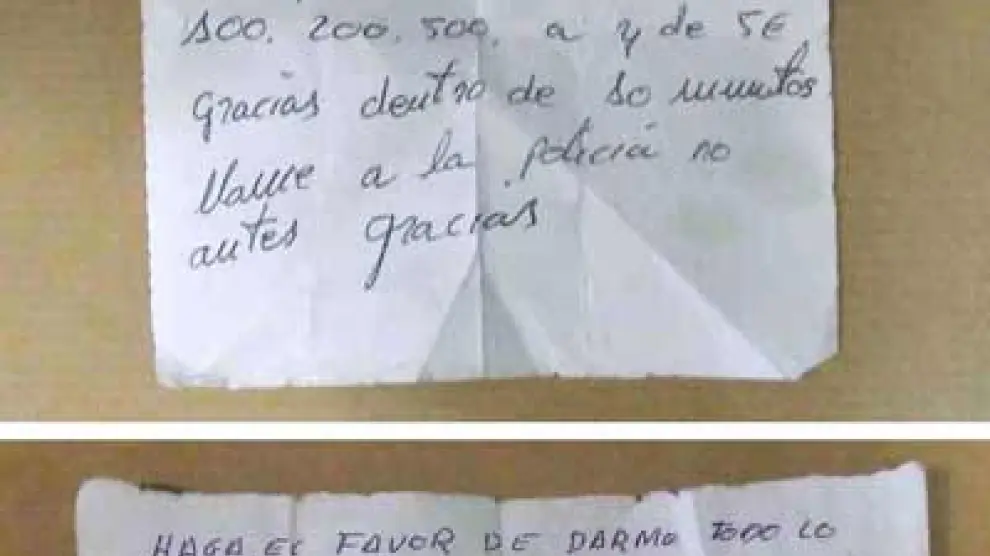 100. 200. 500. a y de 5€
Gracias dentro de 10 minutos
llame a la policia no
antes gracias
HAGA EL FAVOR DE DARMO TODO LO